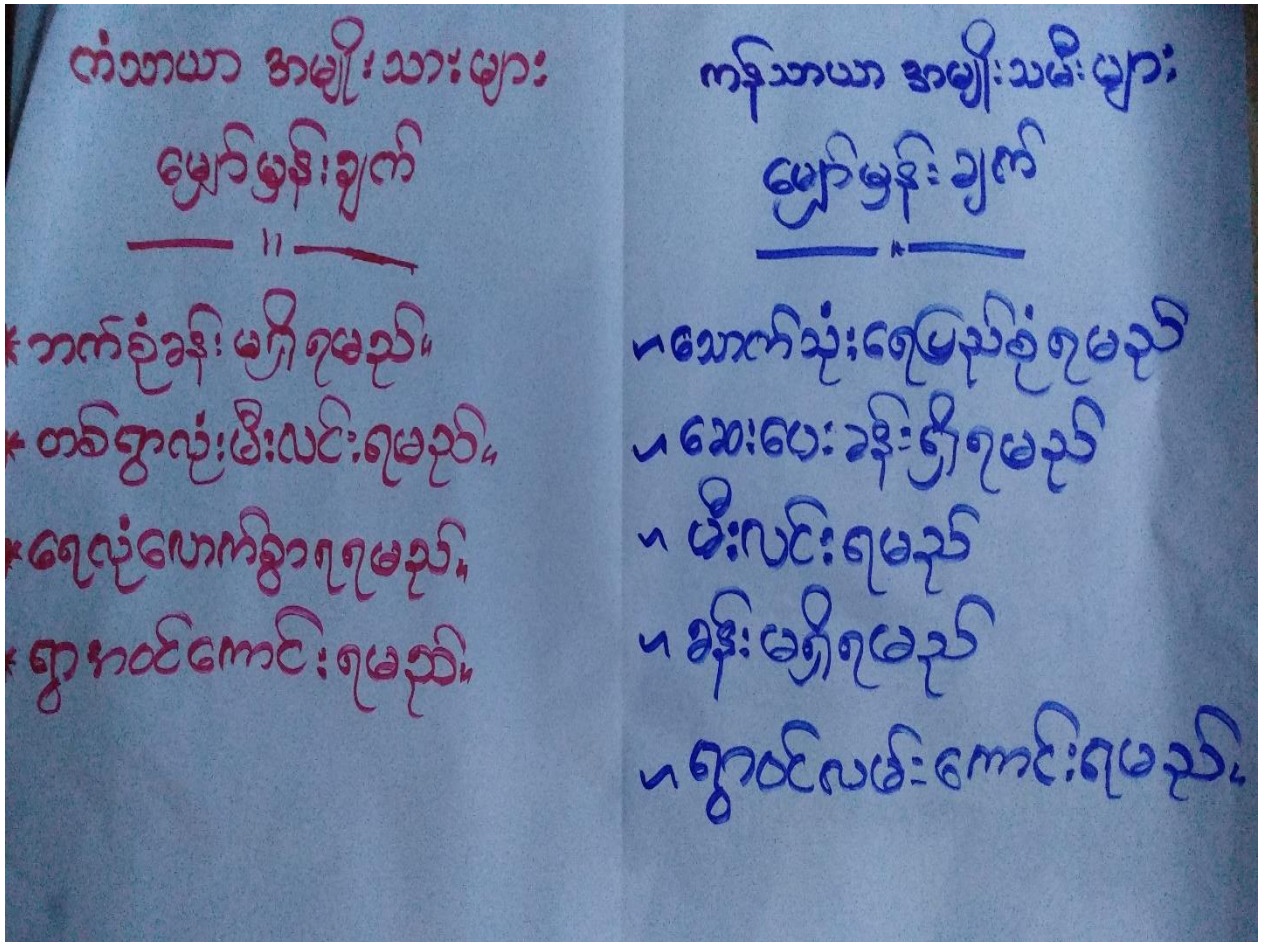 ကံသာယာ အမျိုးသားများ
မျှော်မှန်းချက်
ဘက်စုံခန်းမရှိရမည်။
တစ်ရွာလုံးမီးလင်းရမည်။
ရေလုံလောက်စွာရရမည်။
ရွာအဝင်ကောင်းရမည်။
ကန်သာယာ အမျိုးသမီးများ
မျှော်မှန်းချက်
သောက်သုံးရေပြည်စုံရမည်
ဆေးပေးခန်းရှိရမည်
မီးလင်းရမည်
ခန်းမရှိရမည်
ရွာဝင်လမ်းကောင်းရမည်။